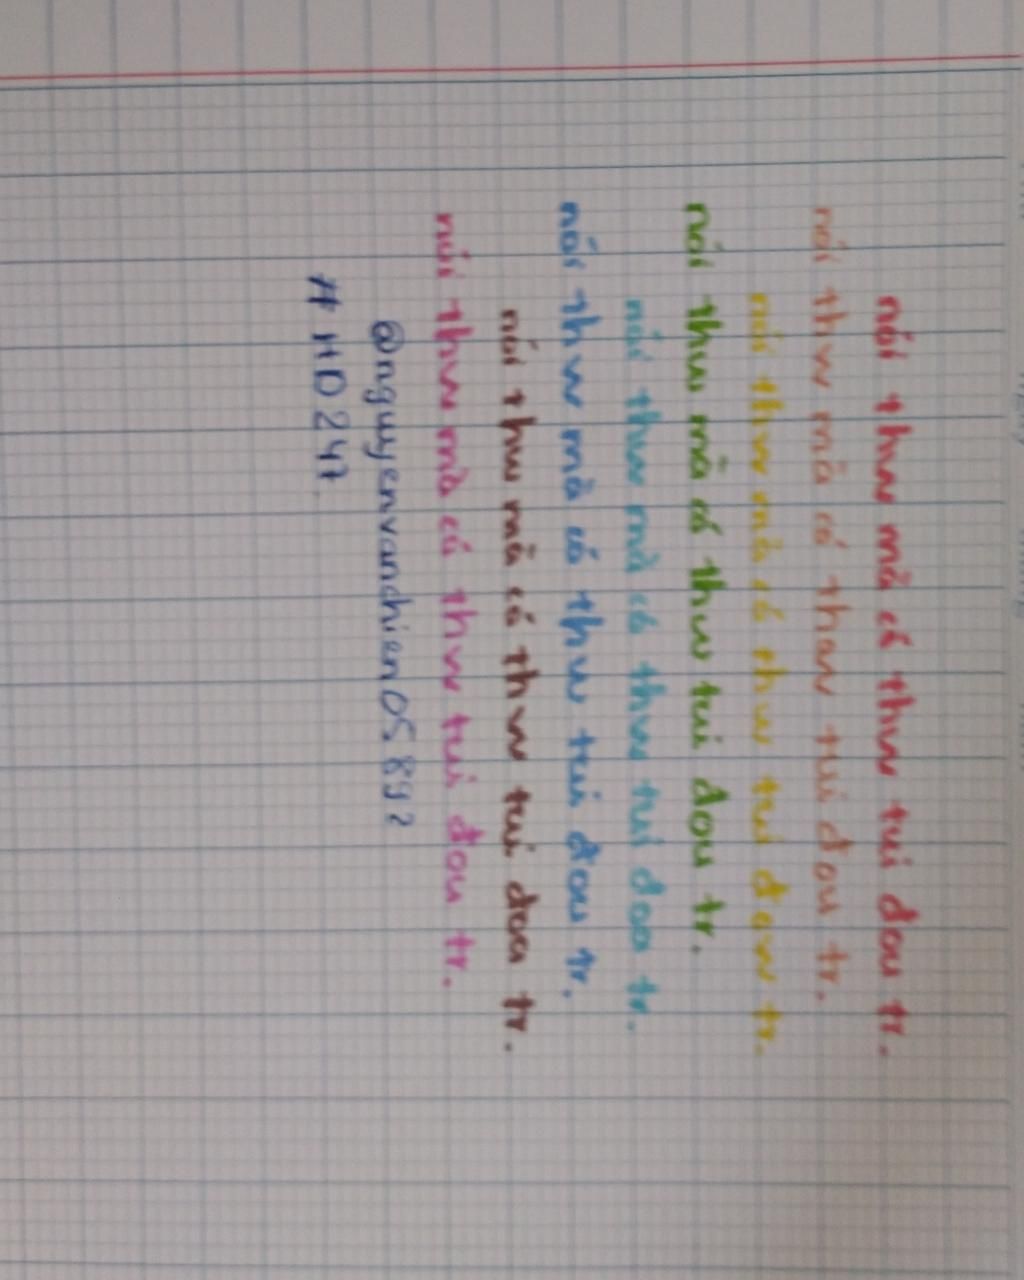 nói thw mà có thw tui đou tr.
nói thw mà có thow tui đou tr.
nói thw mà có thw tui đow tr.
nói thw mà có thw tui đou tr.
nói thw mà có thw tui đoo tr.
nói thw mà có thw tui đou tr.
nói thw mà có thw tui đou tr.
nói thw mà có thw tui đou tr.
@nguyenvanchien05892
# HD247